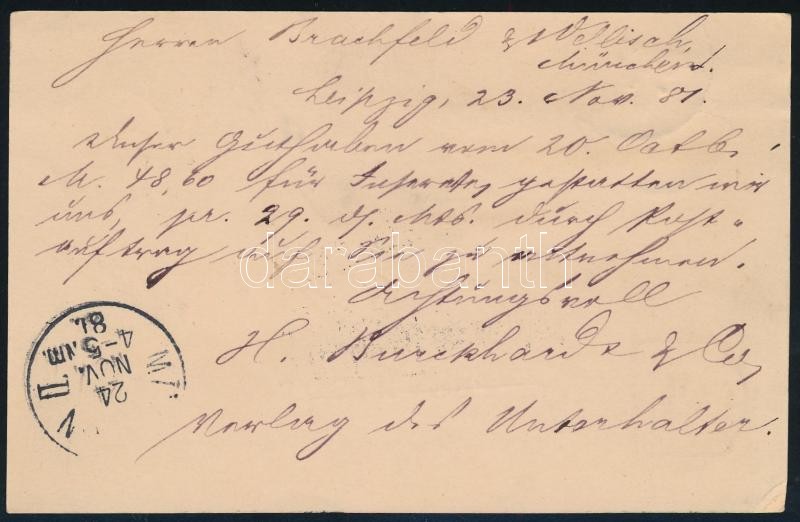 Herren Brachfeld & Wellisch,
München.
Leipzig, 23. Nov. 81.
Unser Guthaben vom 20. Octb.
M. 48,60 für Inserate, gestatten wir
uns, pr. 29. d. Mts. durch Post-
auftrag auf Sie zu entnehmen.
Achtungsvoll
H. Burckhardt & Co,
Verlag des Unterhalter.
24
NOV.
4-5.NM.
81.
II
darabanth